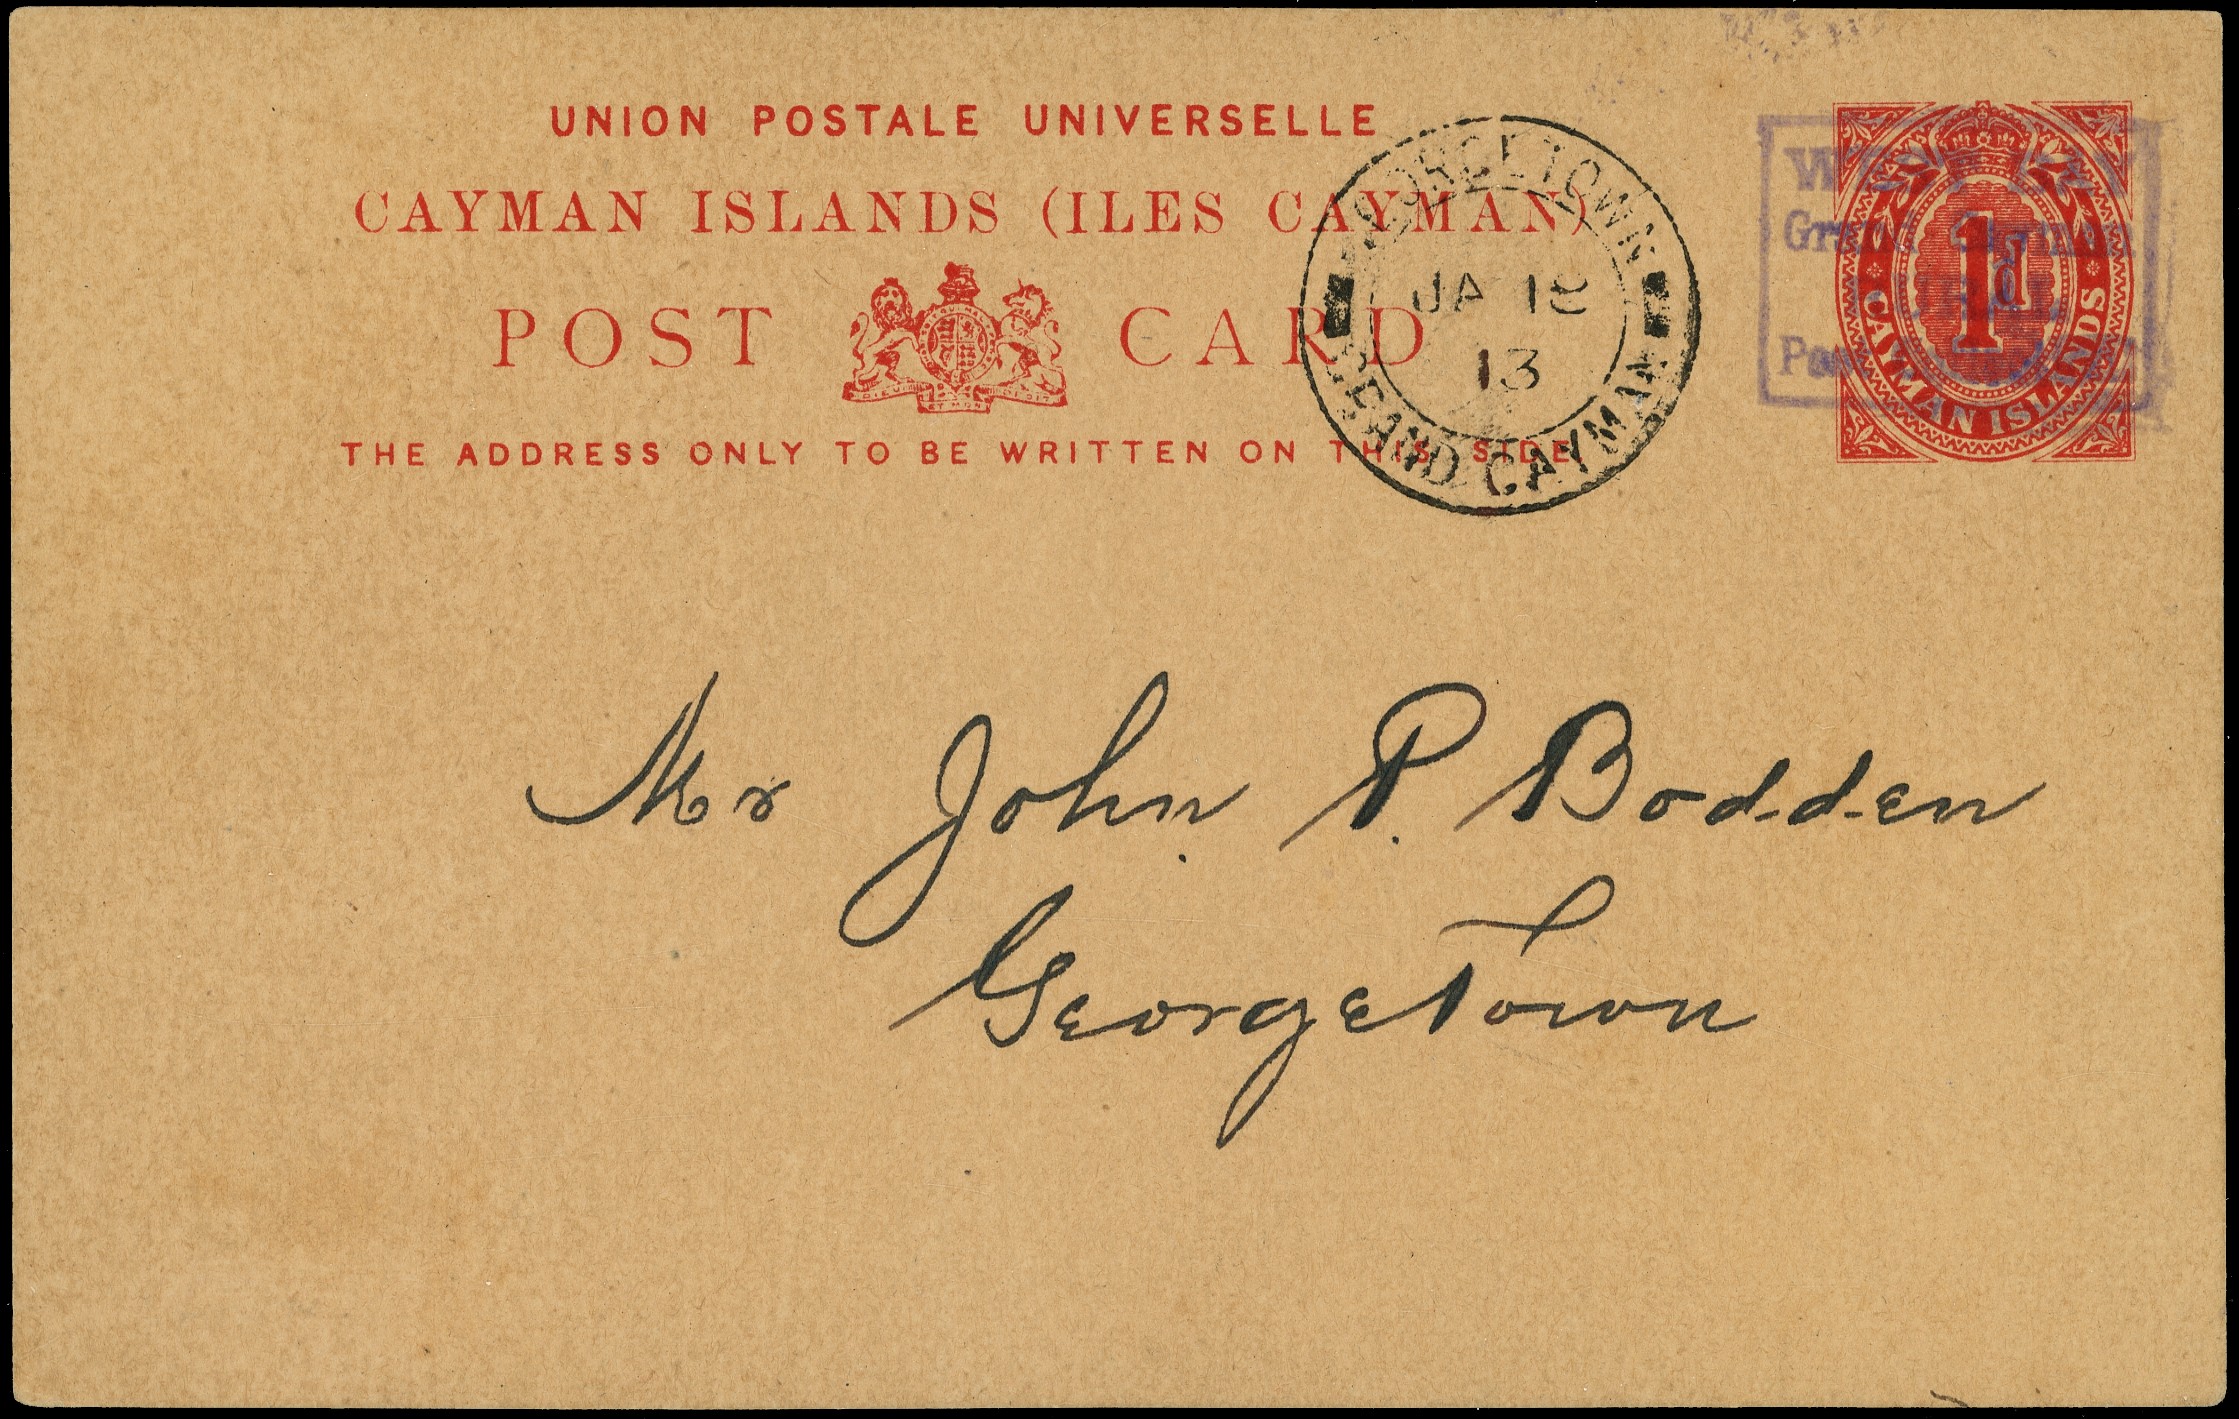 UNION POSTALE UNIVERSELLE
CAYMAN ISLANDS (ILES CAYMAN)
POST CARD
THE ADDRESS ONLY TO BE WRITTEN ON THIS SIDE
GEORGETOWN
JA 18
13
GRAND CAYMAN
1d
CAYMAN ISLANDS
Mr John P. Bodden
Georgetown